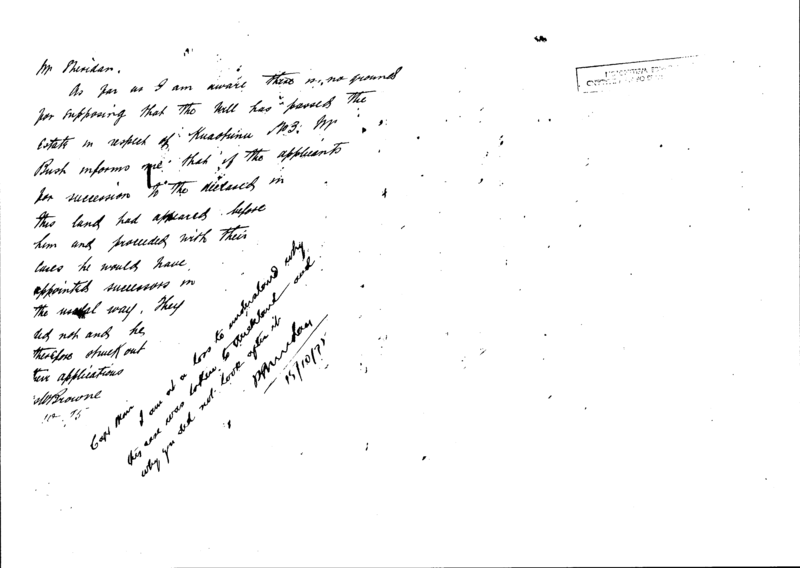 Mr Sheridan.
As far as I am aware there is no ground
for supposing that the Will has passed the
Estate in respect of Kuaotunu No 3. Mr
Bush informs me that if the applicants
for succession to the deceased in
this land had appeared before
him and proceeded with their
cases he would have
appointed successors in
the usual way. They
did not and he
therefore struck out
their applications
Browne
95
Capt Mair
I am at a loss to understand why
this case was taken to Auckland and
why you did not look after it
P Sheridan
15/10/95